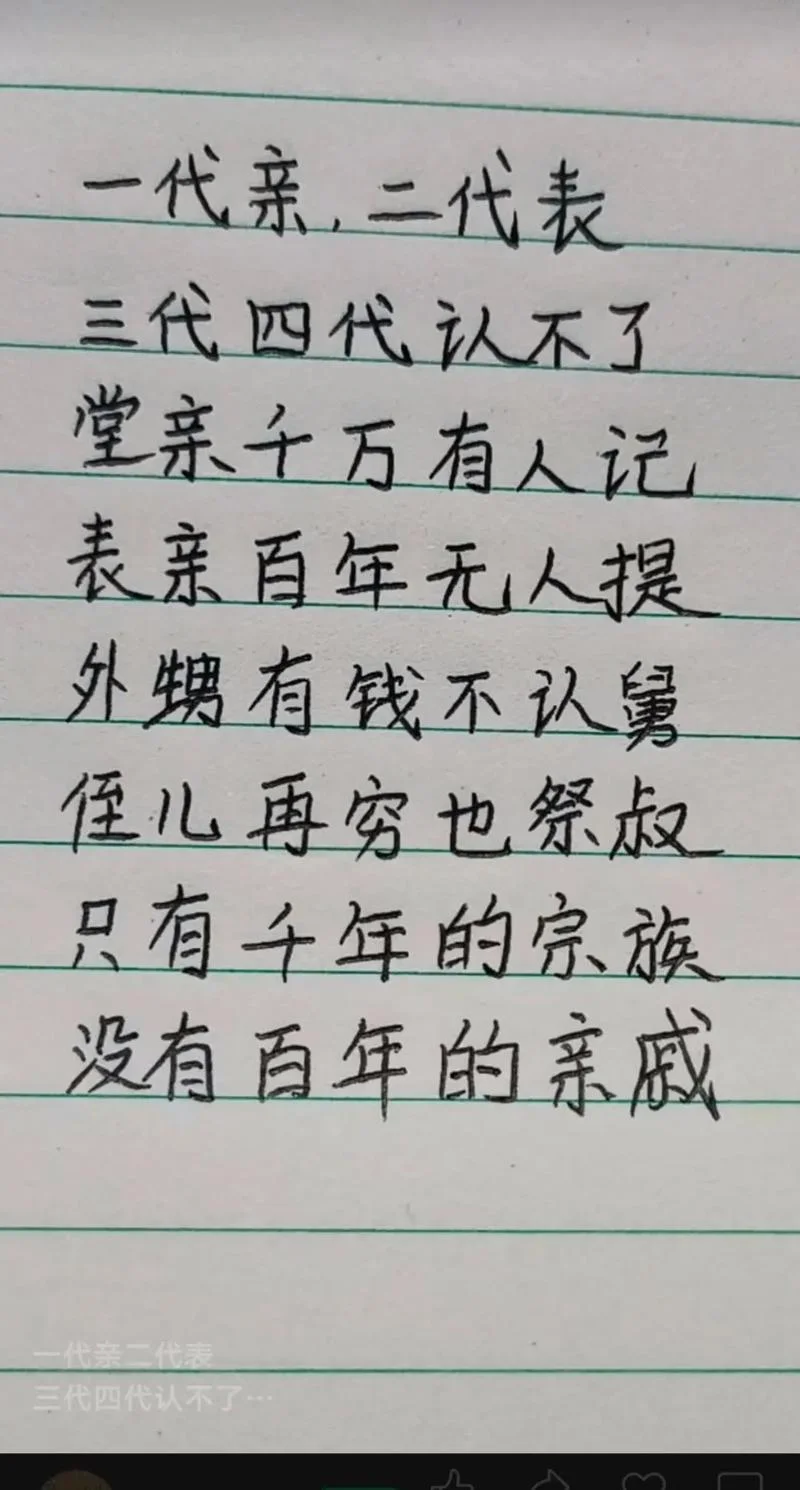 一代亲,二代表
三代四代认不了
堂亲千万有人记
表亲百年无人提
外甥有钱不认舅
侄儿再穷也祭叔
只有千年的宗族
没有百年的亲戚
一代亲二代表
三代四代认不了…